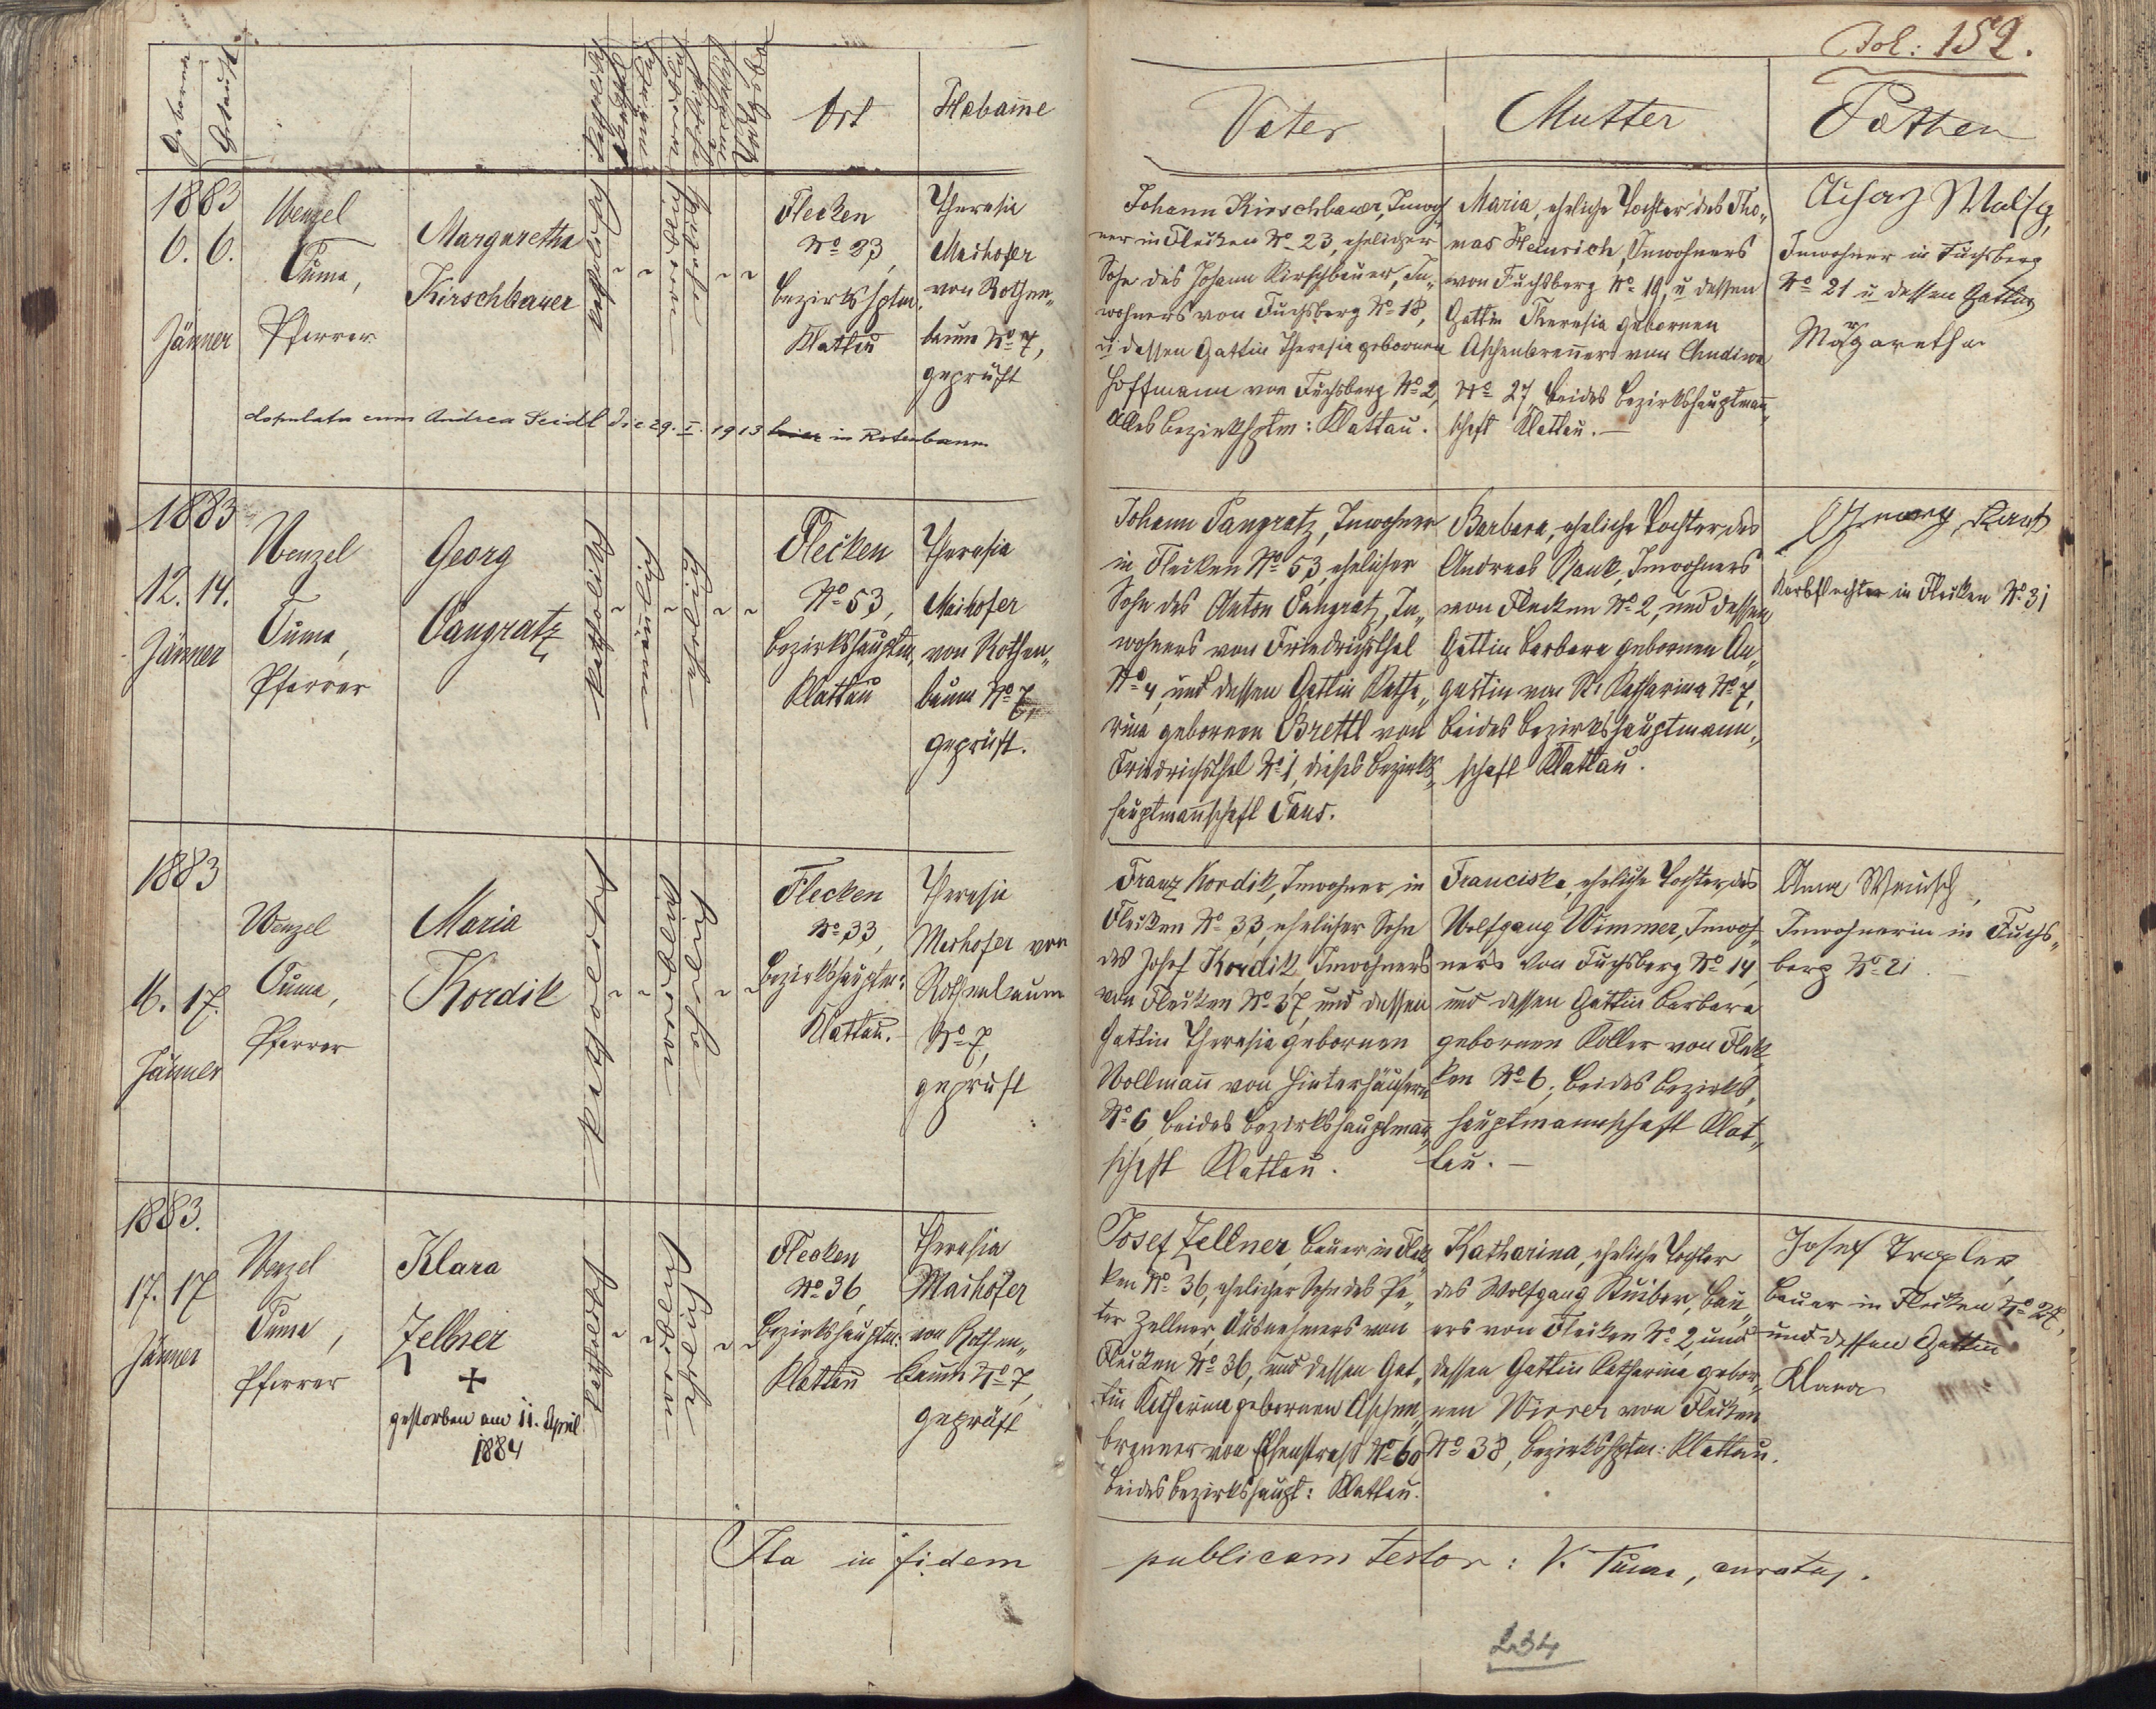 Fol: 152.
Geboren
Getauft
Ort
Hebam̅e
Vater
Mutter
Pathen
1883
6. 6.
Jänner
Wenzel
Tuma,
Pfarrer
Margaretha
Kirschbauer
katholisch
Mädchen
eheliche
Flecken
No 23,
Bezirkshptm.
Klattau
Theresia
Maihofer
von Rothen„
baum No 7,
geprüft
Johann Kirschbauer, Inwoh„
ner in Flecken No 23, ehelicher
Sohn des Johann Kirschbauer, In„
wohners von Fuchsberg No 18,
u dessen Gattin Theresia gebornen
Hoffmann von Fuchsberg No 2,
alles Bezirkshptm: Klattau.
Maria, eheliche Tochter des Tho„
mas Heinrich, Inwohners
von Fuchsberg No 19, u dessen
Gattin Theresia gebornen
Aschenbrenner von Chudiwa
No 27, beides Bezirkshauptman̅„
schaft Klattau. —
Inwohner in Fuchsberg
No 21 u dessen Gattin
Margaretha
copulata cum Andrea Seidl die 29. I. 1913 hier in Rotenbaum
1883
12. 14.
Jänner
Wenzel
Tuma,
Pfarrer
Georg
Pangratz
katholisch
eheliche
Flecken
No 53,
Bezirkshauptm.
Klattau
Theresia
Maihofer
von Rothen„
baum No 7,
geprüft.
Johann Pangratz, Inwohner
in Flecken No 53, ehelicher
Sohn des Anton Pangratz, In„
wohners von Friedrichsthal
No 4, und dessen Gattin Katha„
rina gebornen Brettl von
Friedrichsthal No 1, dieses Bezirks„
hauptman̅schaft Taus.
Barbara, eheliche Tochter des
Andreas Rank, Inwohners
von Flecken No 2, und dessen
Gattin Barbara gebornen Au„
gustin von St. Katharina No 7,
beides Bezirkshauptmann„
schaft Klattau.
Georg
Korbflechter in Flecken No 31
1883
16. 17.
Jänner
Wenzel
Tuma,
Pfarrer
Maria
Kordik
katholisch
Mädchen
eheliche
Flecken
No 33,
Bezirkshauptm:
Klattau.
Theresia
Maihofer von
Rothenbaum
No 7,
geprüft
Franz Kordik, Inwohner in
Flecken No 33, ehelicher Sohn
des Josef Kordik, Inwohners
von Flecken No 37, und dessen
Gattin Theresia gebornen
Vollman̅ von Hinterhäusern
No 6, beides Bezirkshauptman̅„
schaft Klattau.
Franciska, eheliche Tochter des
Wolfgang Wimmer, Inwoh„
ners von Fuchsberg No 14,
und dessen Gattin Barbara
gebornen Koller von Flek„
ken No 6, beides Bezirks„
hauptmannschaft Klat„
tau. —
Anna
Inwohnerin in Fuchs„
berg No 21. —
1883.
17. 17
Jänner
Wenzel
Tuma,
Pfarrer
Klara
Zellner
+
gestorben am 11. April
1884
katholisch
Mädchen
eheliche
Flecken
No 36,
Bezirkshauptm:
Klattau
Theresia
Maihofer
von Rothen„
baum No 7,
geprüft
Josef Zellner, Bauer in Flek„
ken No 36, ehelicher Sohn des Pe„
ter Zellner, Ausnehmers von
Flecken No 36, und dessen Gat„
tin Katharina gebornen Aschen„
brenner von Eisenstraß No 60
beides Bezirkshaupt: Klattau.
Katharina, eheliche Tochter
des Wolfgang Stuiber, Bau„
ers von Flecken No 2, und
dessen Gattin Katharina gebor„
nen Wierer von Flecken
No 38, Bezirkshptm: Klattau.
Josef
Bauer in Flecken No 24,
und dessen Gattin
Klara
Ita in fidem publicam testor: V. Tuma, curatus.
234